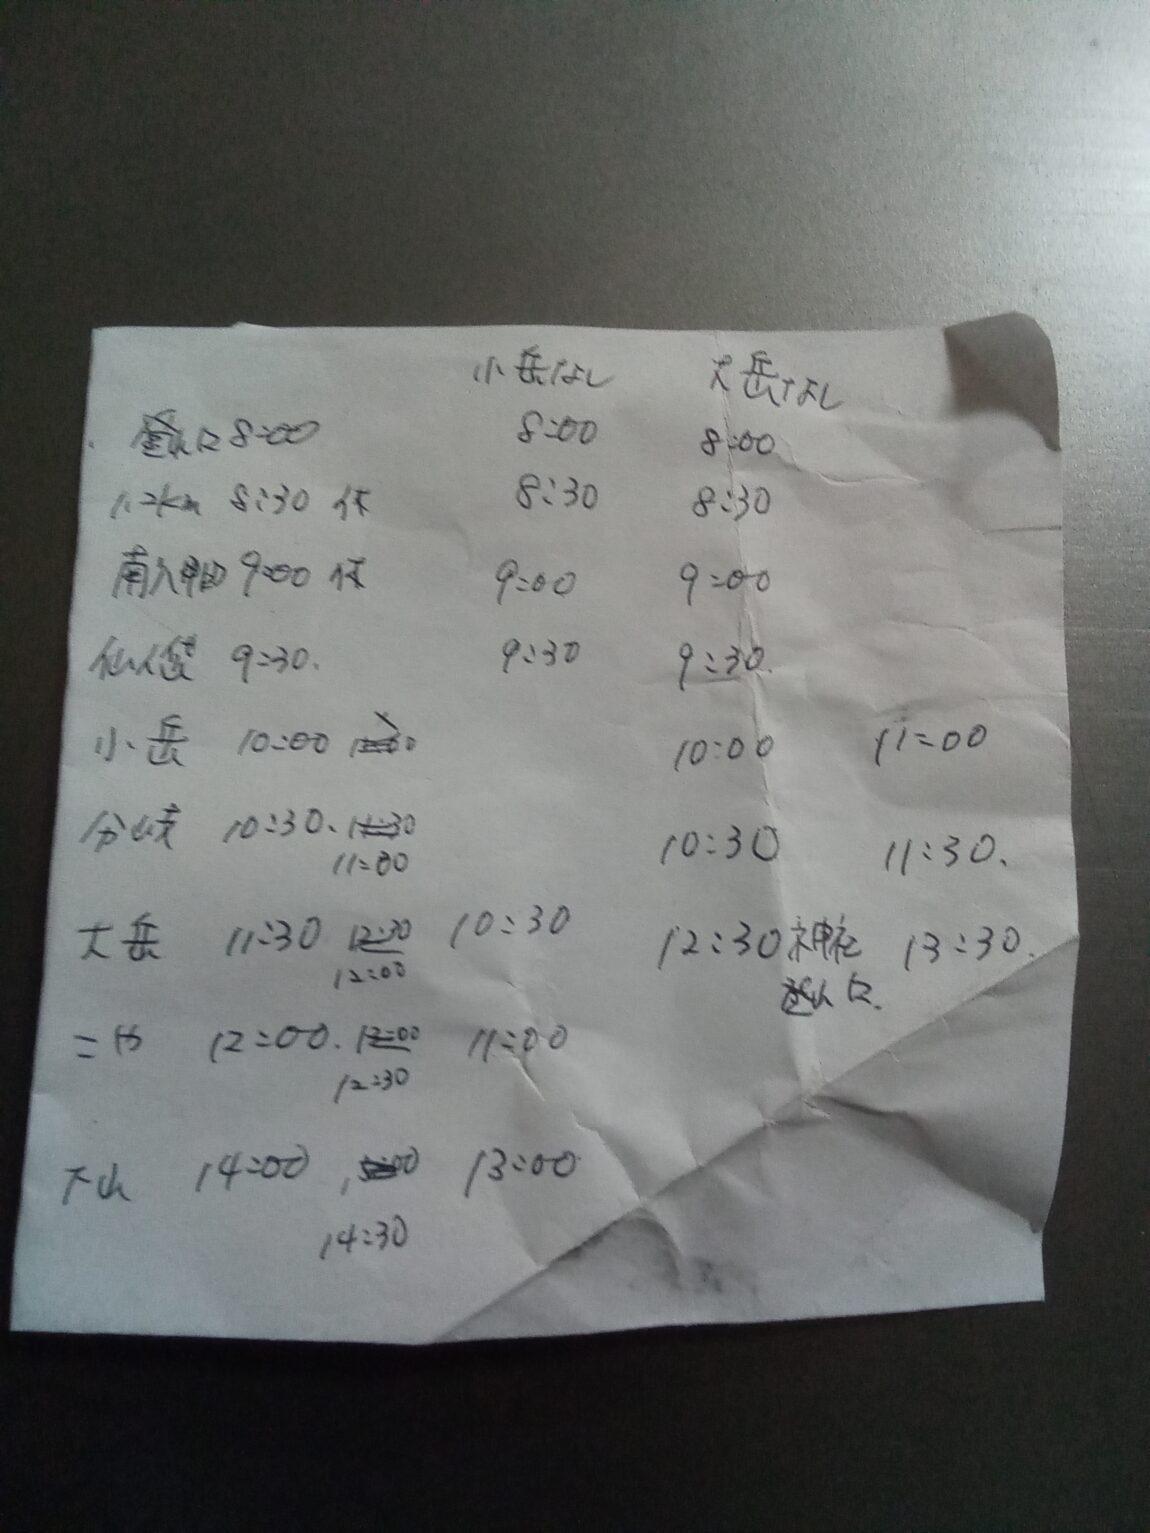 小岳なし 大岳なし
登山口 8:00 8:00 8:00
1.2km 8:30 休 8:30 8:30
南八甲田 9:00 休 9:00 9:00
仙人岱 9:30. 9:30 9:30.
小岳 10:00 10:00 11:00
分岐 10:30. 11:30 10:30 11:30.
11:00
大岳 11:30 12:30 10:30 12:30 神社 13:30.
12:00 登山口.
12:00. 12:00 11:00
12:30
下山 14:00 13:00
14:30